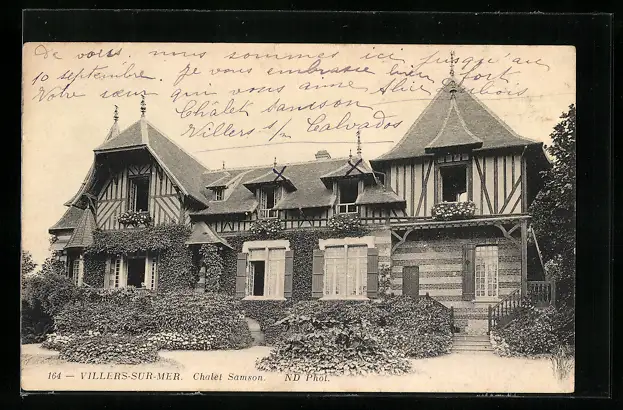 De vous nous sommes ici jusqu'au
10 septembre. Je vous embrasse bien fort
Votre sœur qui vous aime
Châlet Samson
Villers s/m Calvados
164 — VILLERS-SUR-MER. Chalet Samson. ND Phot.